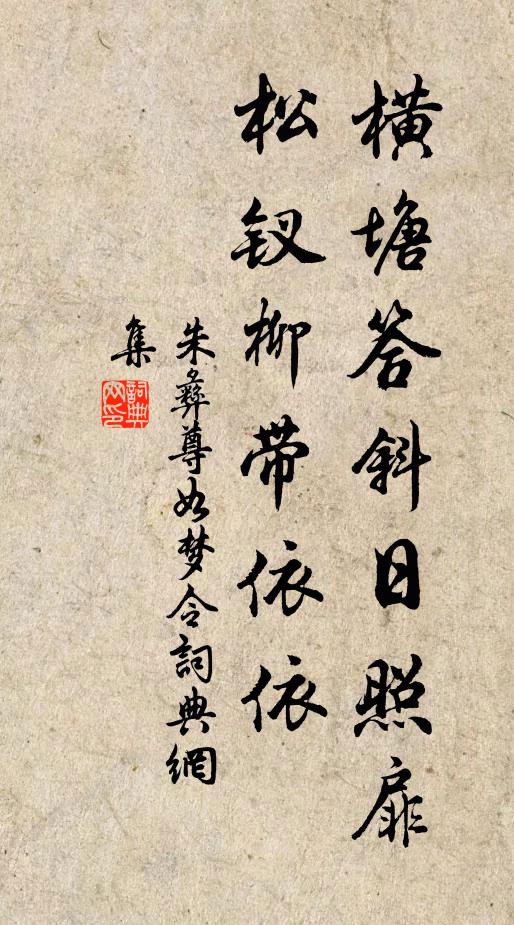 横塘答斜日照扉
松钗柳带依依
朱彝尊如梦令詞典網
集
詞典
网印